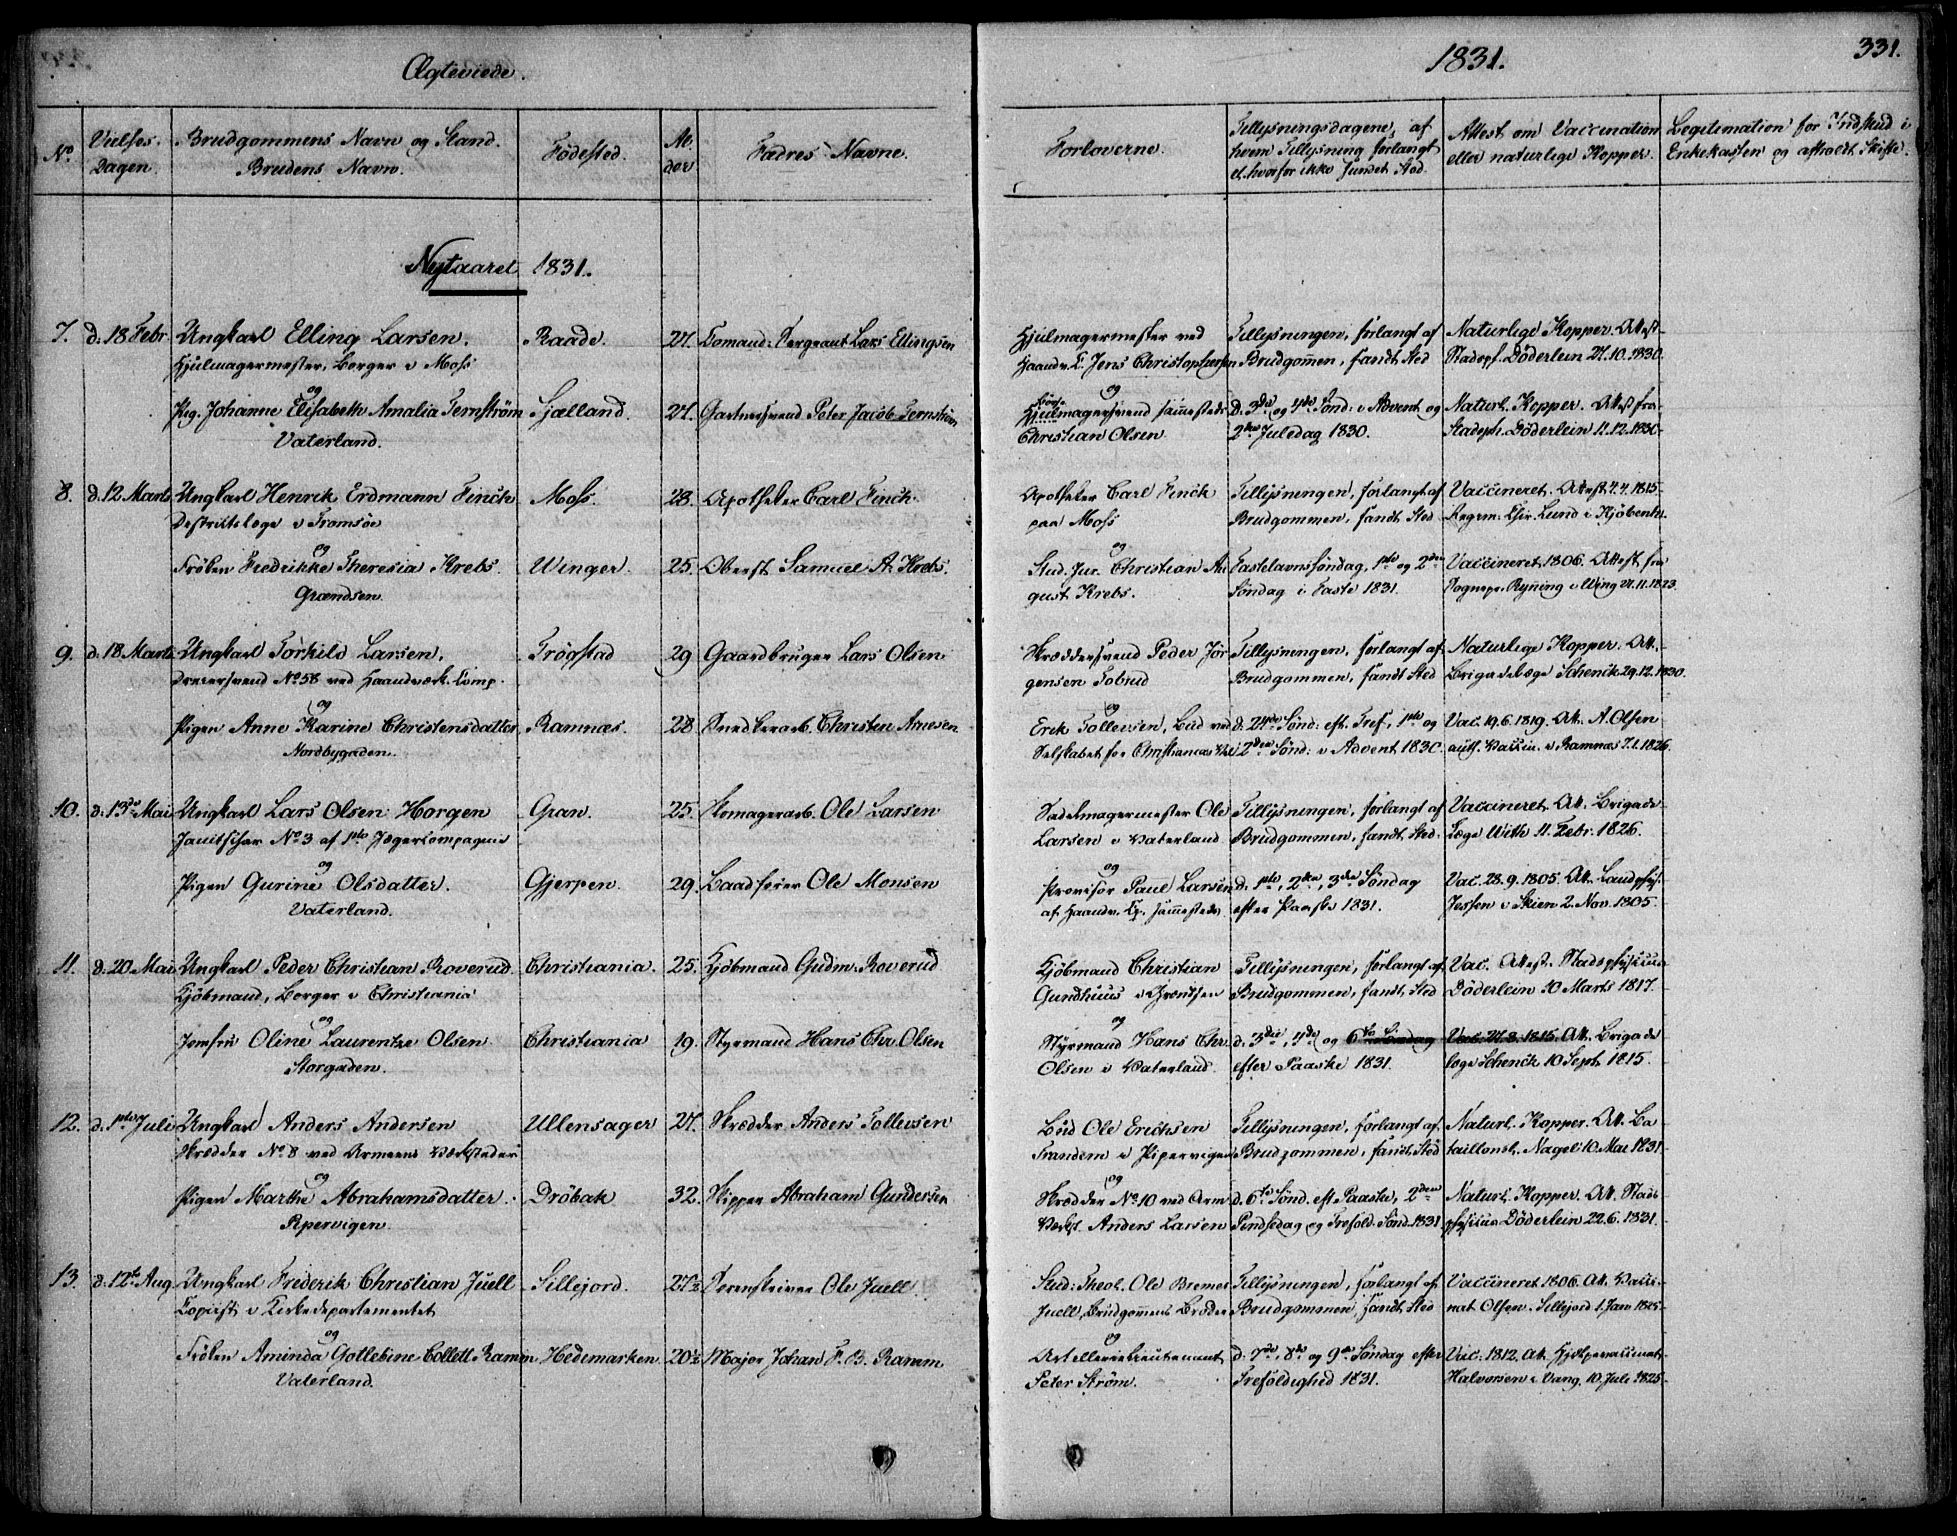 Ægteviede.
1831.
331.
No
Vielses-
Dagen.
Brudgommens Navn og Stand.
Brudens Navn.
Fødested.
Al-
der
Fædres Navne.
Forloverne.
Tillysningsdagene, af
hvem Tillysning forlangt
el. hvorfor ikke fundet Sted.
Attest om Vaccination
eller naturlige Kopper.
Legitimation for Indskud i
Enkekassen og afholdt Skifte.
Nytaaret 1831.
7. d. 18 Febr. Ungkarl Elling Larsen. Raade. 27. Comand: Sergeant Lars Ellingsen
Hjulmagermester, Borger i Moss
og
Pig. Johanne Elisabeth Amalia Fernström Sjælland. 27. Gartnersvend Peter Jacob Fernström
Vaterland.
Hjulmagermester ved Tillysningen, forlangt af Naturlige Kopper. Attest
Haandv. C. Jens Christophersen Brudgommen, fandt Sted Stadsph. Döderlein 27.10.1830.
og
Hjulmagersvend sammesteds d. 3die og 4de Sönd: i Advent og Naturl. Kopper. Attest fra
Christian Olsen 2den Juledag 1830. Stadsph. Döderlein 11.12.1830.
8. d. 12 Marts Ungkarl Henrik Erdmann Finckh Moss. 28. Apotheker Carl Finckh.
Destriktslæge i Tromsöe
og
Fröken Fredrikke Theresia Krebs. Winger. 25. Oberst Samuel A. Krebs.
Grændsen.
Apotheker Carl Finckh Tillysningen, forlangt af Vaccineret. Attest 4.4.1815
paa Moss Brudgommen, fandt Sted Regim. Chir. Lund i Kjöbenh.
og
Stud. Jur. Christian Au- Fastelavnssöndag, 1ste og 2den Vaccineret 1806. Attest fra
gust Krebs. Söndag i Faste 1831. Sognepr. Ryning i Wing 21.11.1823.
9. d. 18 Marts Ungkarl Torkild Larsen. Trögstad 29 Gaardbruger Lars Olsen
Dreiersvend No 58 ved Haandværk. Comp.
og
Pigen Anne Karine Christensdatter Ramnæs. 28 Snedkerarb. Christen Arnesen
Nordbygaden.
Skræddersvend Peder Jör- Tillysningen, forlangt af Naturlige Kopper. Att.
gensen Tobrud Brudgommen, fandt Sted Brigadelæge Schenck 29.12.1830.
og
Erik Tollevsen, Bud ved d. 24de Sönd: eft. Tref, 1ste og Vac. 19.6.1819. Att. A. Olsen
Selskabet for Christianias Vel 2den Sönd: i Advent 1830. auth. Vaccin. i Ramnæs 7.1.1826.
10. d. 13de Mai Ungkarl Lars Olsen Horgen Gran. 25. Skomagerarb. Ole Larsen
Janitschar No 3 af 1ste Jægercompagnie
og
Pigen Gurine Olsdatter. Gjerpen. 29. Baadförer Ole Monsen
Vaterland.
Sadelmagermester Ole Tillysningen, forlangt af Vaccineret. Att. Brigade-
Larsen i Vaterland Brudgommen, fandt Sted. Læge With 11. Febr. 1826.
og
Provisor Paul Larsen d. 1ste, 2den, 3die Söndag Vac. 28.9.1805. Att. Landphys.
af Haandv. Cp. sammesteds efter Paaske 1831. Jessen i Skien 2. Nov. 1805.
11. d. 20 Mai Ungkarl Peder Christian Roverud. Christiania. 25. Kjöbmand Gudm. Roverud
Kjöbmand, Borger i Christiania
og
Jomfru Oline Laurentze Olsen Christiania 19. Styrmand Hans Chr. Olsen
Storgaden.
Kjöbmand Christian Tillysningen, forlangt af Vac. Attest. Stadsphysicus
Gundhuus i Grændsen Brudgommen, fandt Sted Döderlein 10 Marts 1817.
og
Styrmand Hans Chr. d. 3die, 4de og 6te Söndag Vac. 27.8.1815. Att. Brigade
Olsen i Vaterland efter Paaske 1831. læge Schenck 10 Sept. 1815.
12. d. 1ste Juli Ungkarl Anders Andersen Ullensager 27. Skrædder Anders Tollevsen
Skrædder No 8 ved Armeens Værksteder
og
Pigen Marthe Abrahamsdatter. Dröbak 32. Skipper Abraham Gundersen
Pipervigen.
Bud Ole Erichsen Tillysningen, forlangt af Naturl. Kopper. Att. Ba
Trandem i Pipervigen Brudgommen, fandt Sted taillonsl. Nagel 10 Mai 1831.
og
Skrædder No 10 ved Arm. d. 6te Sönd. eft. Paaske, 2den Naturl. Kopper. Att. Stads
Værkst. Anders Larsen Pindsedag og Trefold. Sönd. 1831. physicus Döderlein 22.6.1831.
13. d. 12te Aug. Ungkarl Frederik Christian Juell Sillejord. 27½ Sorenskriver Ole Juell.
Copiist i Kirkedepartementet
og
Fröken Aminda Gottlebine Collett Ramm Hedemarken 20½ Major Johan F. B. Ramm
Vaterland.
Stud: Theol. Ole Bremer Tillysningen, forlangt af Vaccineret 1806. Att. Vacci-
Juell, Brudgommens Broder Brudgommen, fandt Sted nat. Olsen. Sillejord 1. Jan 1825
og
Artellerielieutenant d. 7de, 8de og 9de Söndag efter Vac. 1812. Att. Hjelpevaccinat.
Peter Ström. Trefoldighed 1831. Halvorsen i Vang. 10. Juli 1825.